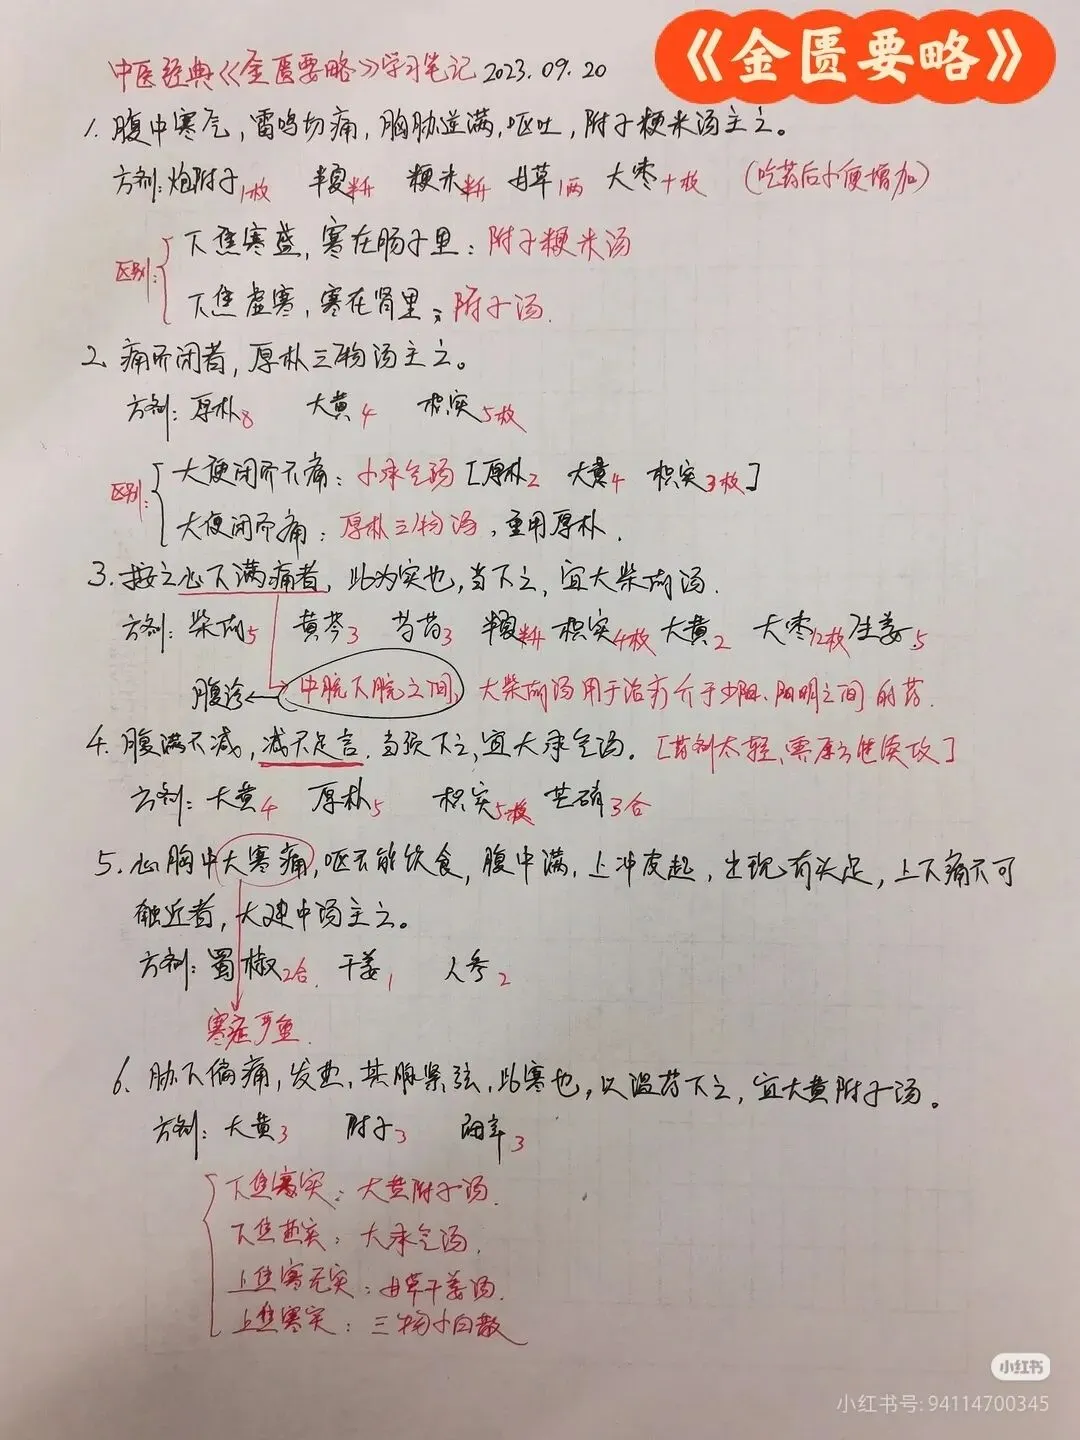 《金匮要略》
中医经典《金匮要略》学习笔记 2023.09.20
1. 腹中寒气，雷鸣切痛，胸胁逆满，呕吐，附子粳米汤主之。
方剂：炮附子1枚 半夏半升 粳米半升 甘草1两 大枣十枚 （吃药后小便增加）
区别：
下焦寒盛，寒在肠子里：附子粳米汤
下焦虚寒，寒在肾里：附子汤.
2. 痛而闭者，厚朴三物汤主之。
方剂：厚朴8 大黄4 枳实5枚
区别：
大便闭而不痛：小承气汤 [厚朴2 大黄4 枳实3枚]
大便闭而痛：厚朴三物汤，重用厚朴.
3. 按之心下满痛者，此为实也，当下之，宜大柴胡汤.
方剂：柴胡5 黄芩3 芍药3 半夏半升 枳实4枚 大黄2 大枣12枚 生姜5
腹诊← 中脘下脘之间，大柴胡汤用于治疗介于少阳、阳明之间的药.
4. 腹满不减，减不足言，当须下之，宜大承气汤. [药剂太轻，需原方继续攻]
方剂：大黄4 厚朴5 枳实5枚 芒硝3合
5. 心胸中大寒痛，呕不能饮食，腹中满，上冲皮起，出现有头足，上下痛不可
触近者，大建中汤主之。
方剂：蜀椒2合 干姜1 人参2
寒症严重.
6. 胁下偏痛，发热，其脉紧弦，此寒也，以温药下之，宜大黄附子汤。
方剂：大黄3 附子3 细辛3
下焦寒实：大黄附子汤.
下焦热实：大承气汤.
上焦寒无实：甘草干姜汤.
上焦寒实：三物小白散
小红书
小红书号: 94114700345